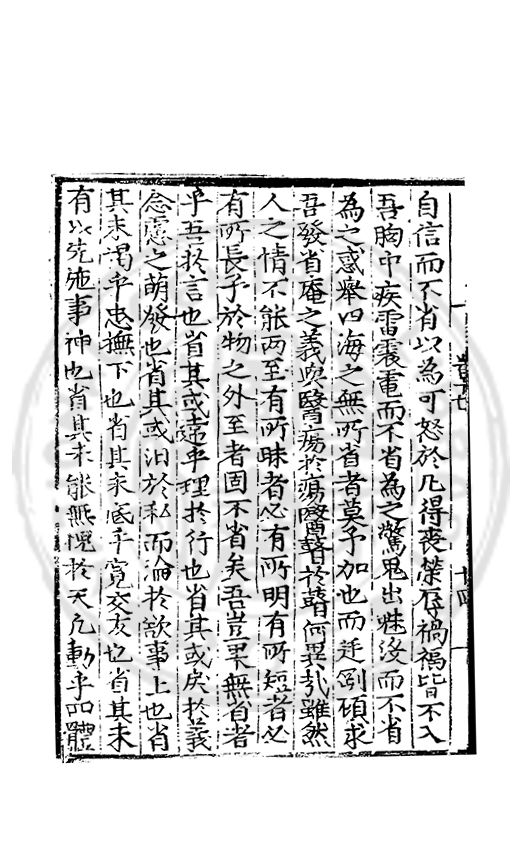 自信而不省以為可怒於凡得喪榮辱禍福皆不入
吾胸中疾雷震電而不省為之驚鬼出魅沒而不省
為之惑舉四海之無所省者莫予加也而迂倒碩求
吾發省庵之義與醫瘍於瘍醫瞽於瞽何異哉雖然
人之情不能两至有所昧者必有所明有所短者必
有所長予於物之外至者固不省矣吾豈果無省者
乎吾於言也省其或違乎理於行也省其或戾於義
念慮之萌發也省其或汩於私而淪於欲事上也省
其未竭乎忠撫下也省其未底乎寛交友也省其未
有以先施事神也省其未能無愧於天凡動乎四體